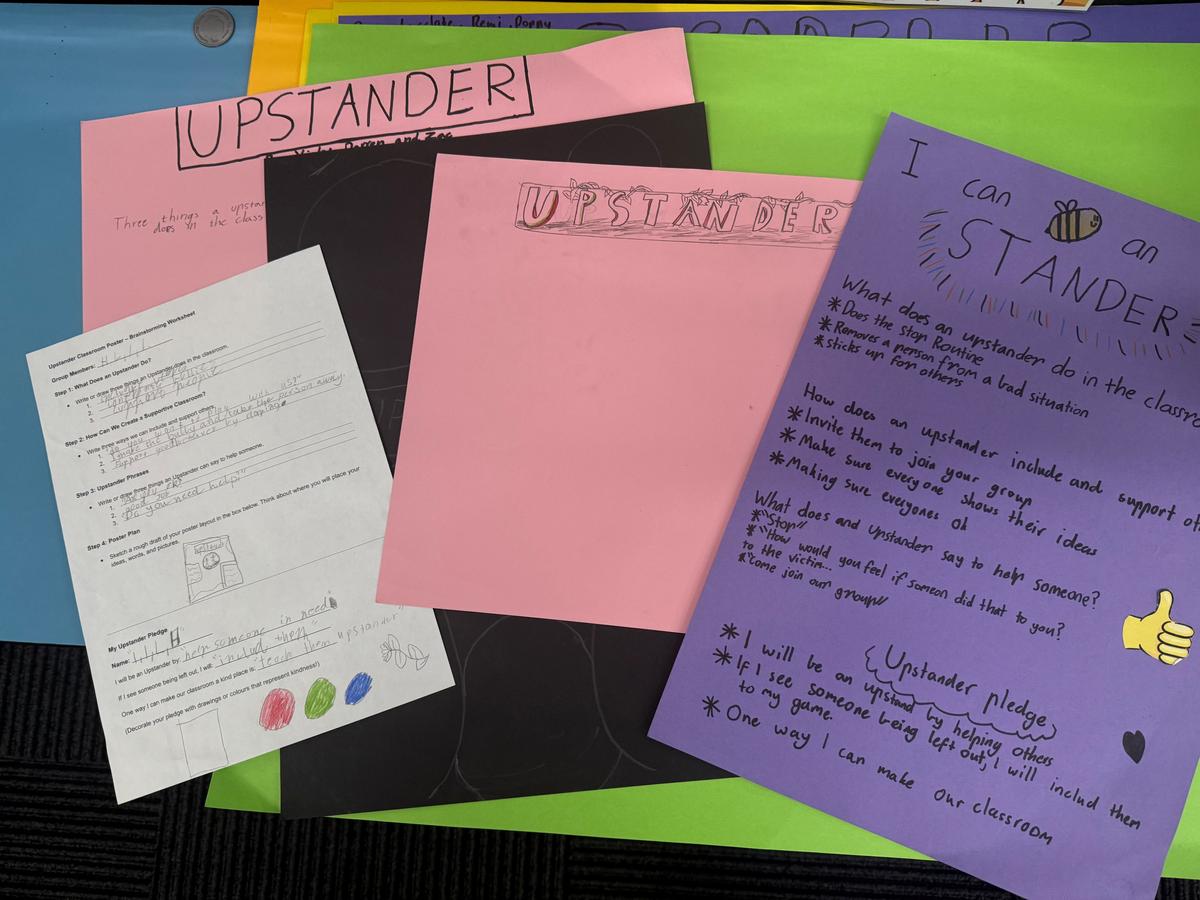 Remi, Poppy
UPSTANDER
Darren and Zac
Three things a upstan
does in the class
UPSTANDER
I can an
STANDER
What does an upstander do in the classro
*Does the stop Routine
*Removes a person from a bad situation
*sticks up for others
How does an upstander include and support ot
*Invite them to join your group
*Make sure everyone shows their ideas
*Making sure everyones ok
What does and upstander say to help someone?
*"Stop"
*"How would you feel if someon did that to you?
to the victim...
*"come join our group"
Upstander pledge
*I will be an upstand by helping others
*If I see someone being left out, I will includ them
to my game.
*One way I can make our classroom
Upstander Classroom Poster – Brainstorming Worksheet
Group Members:
Step 1: What Does an Upstander Do?
• Write or draw three things an Upstander does in the classroom.
1.
2.
3. support people
Step 2: How Can We Create a Supportive Classroom?
• Write three ways we can include and support others.
1. "do you want to play with us?"
2. make the bully and take the person away.
3. support
Step 3: Upstander Phrases
• Write or draw three things an Upstander can say to help someone.
1. "Are you ok?"
2. good job
3. "Do you need help?"
Step 4: Poster Plan
• Sketch a rough draft of your poster layout in the box below. Think about where you will place your
ideas, words, and pictures.
My Upstander Pledge
Name:
I will be an Upstander by: help someone in need
If I see someone being left out, I will: "includ them"
One way I can make our classroom a kind place is: "teach them upstander"
(Decorate your pledge with drawings or colours that represent kindness!)